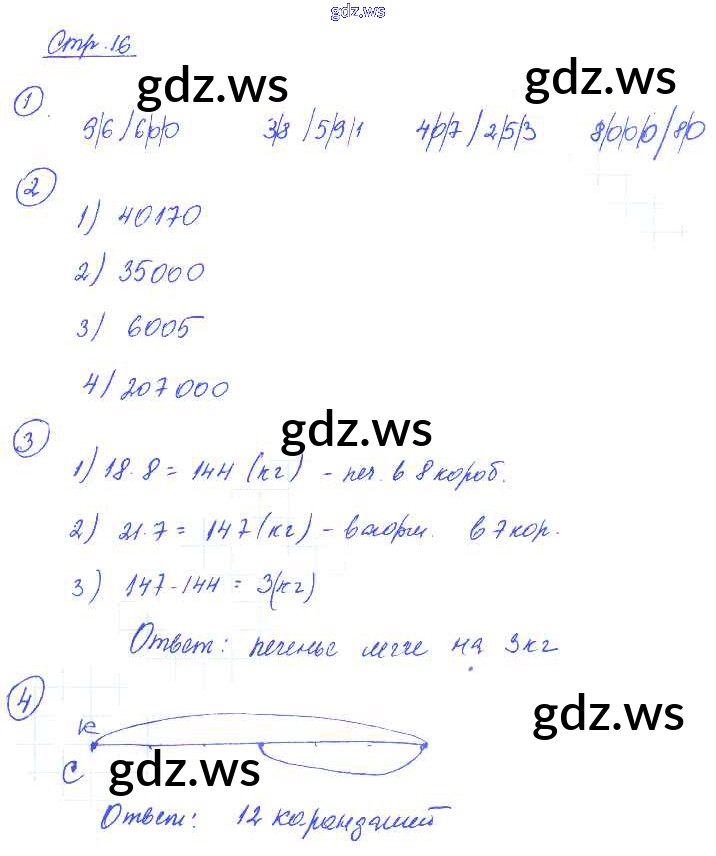 gdz.ws
Стр. 16
gdz.ws gdz.ws
1.
9|6/6|0|0 3|8/5|9|1 4|0|7/2|5|3 8|0|0|0/8|0
2
1) 40170
2) 35000
3) 6005
4) 207000
gdz.ws
3
1) 18·8 = 144 (кг) - печ. в 8 короб.
2) 21·7 = 147 (кг) - в 7 кор.
3) 147-144 = 3(кг)
Ответ: печенье легче на 3 кг
4
gdz.ws
К
С
gdz.ws
Ответ: 12 карандашей